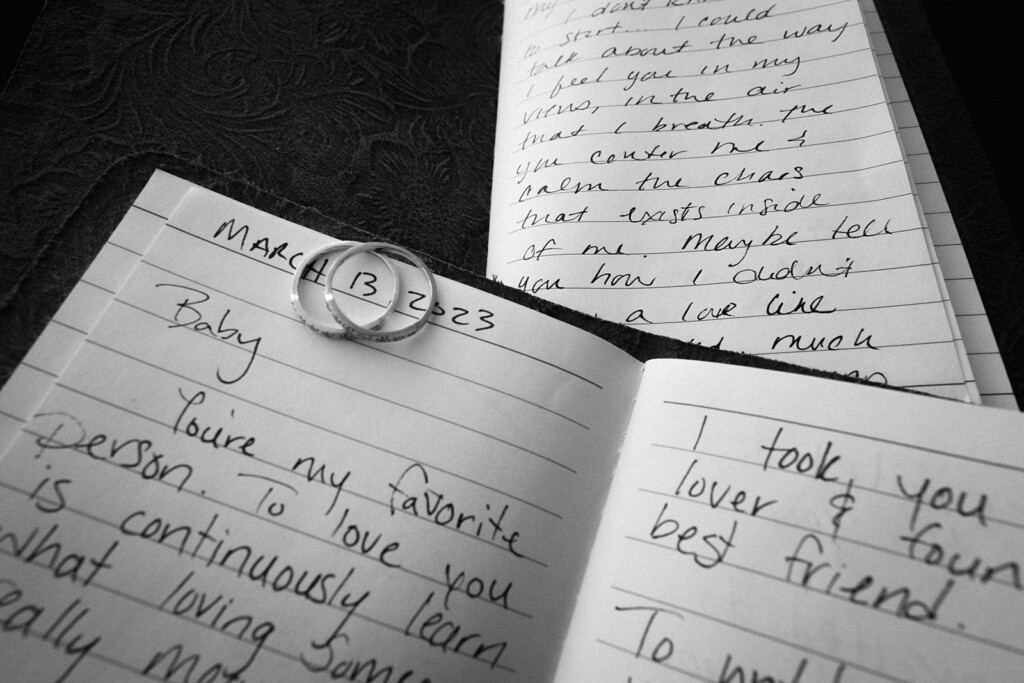 MARCH 13, 2023
Baby
You're my favorite
person. To love you
is continuously learn
what loving
really
I took you
lover & foun
best friend.
To
my I don't
to start... I could
talk about the way
I feel you in my
viens, in the air
that I breath. the
you center me &
calm the chaos
that exists inside
of me. Maybe tell
you how I didn't
a love like
much